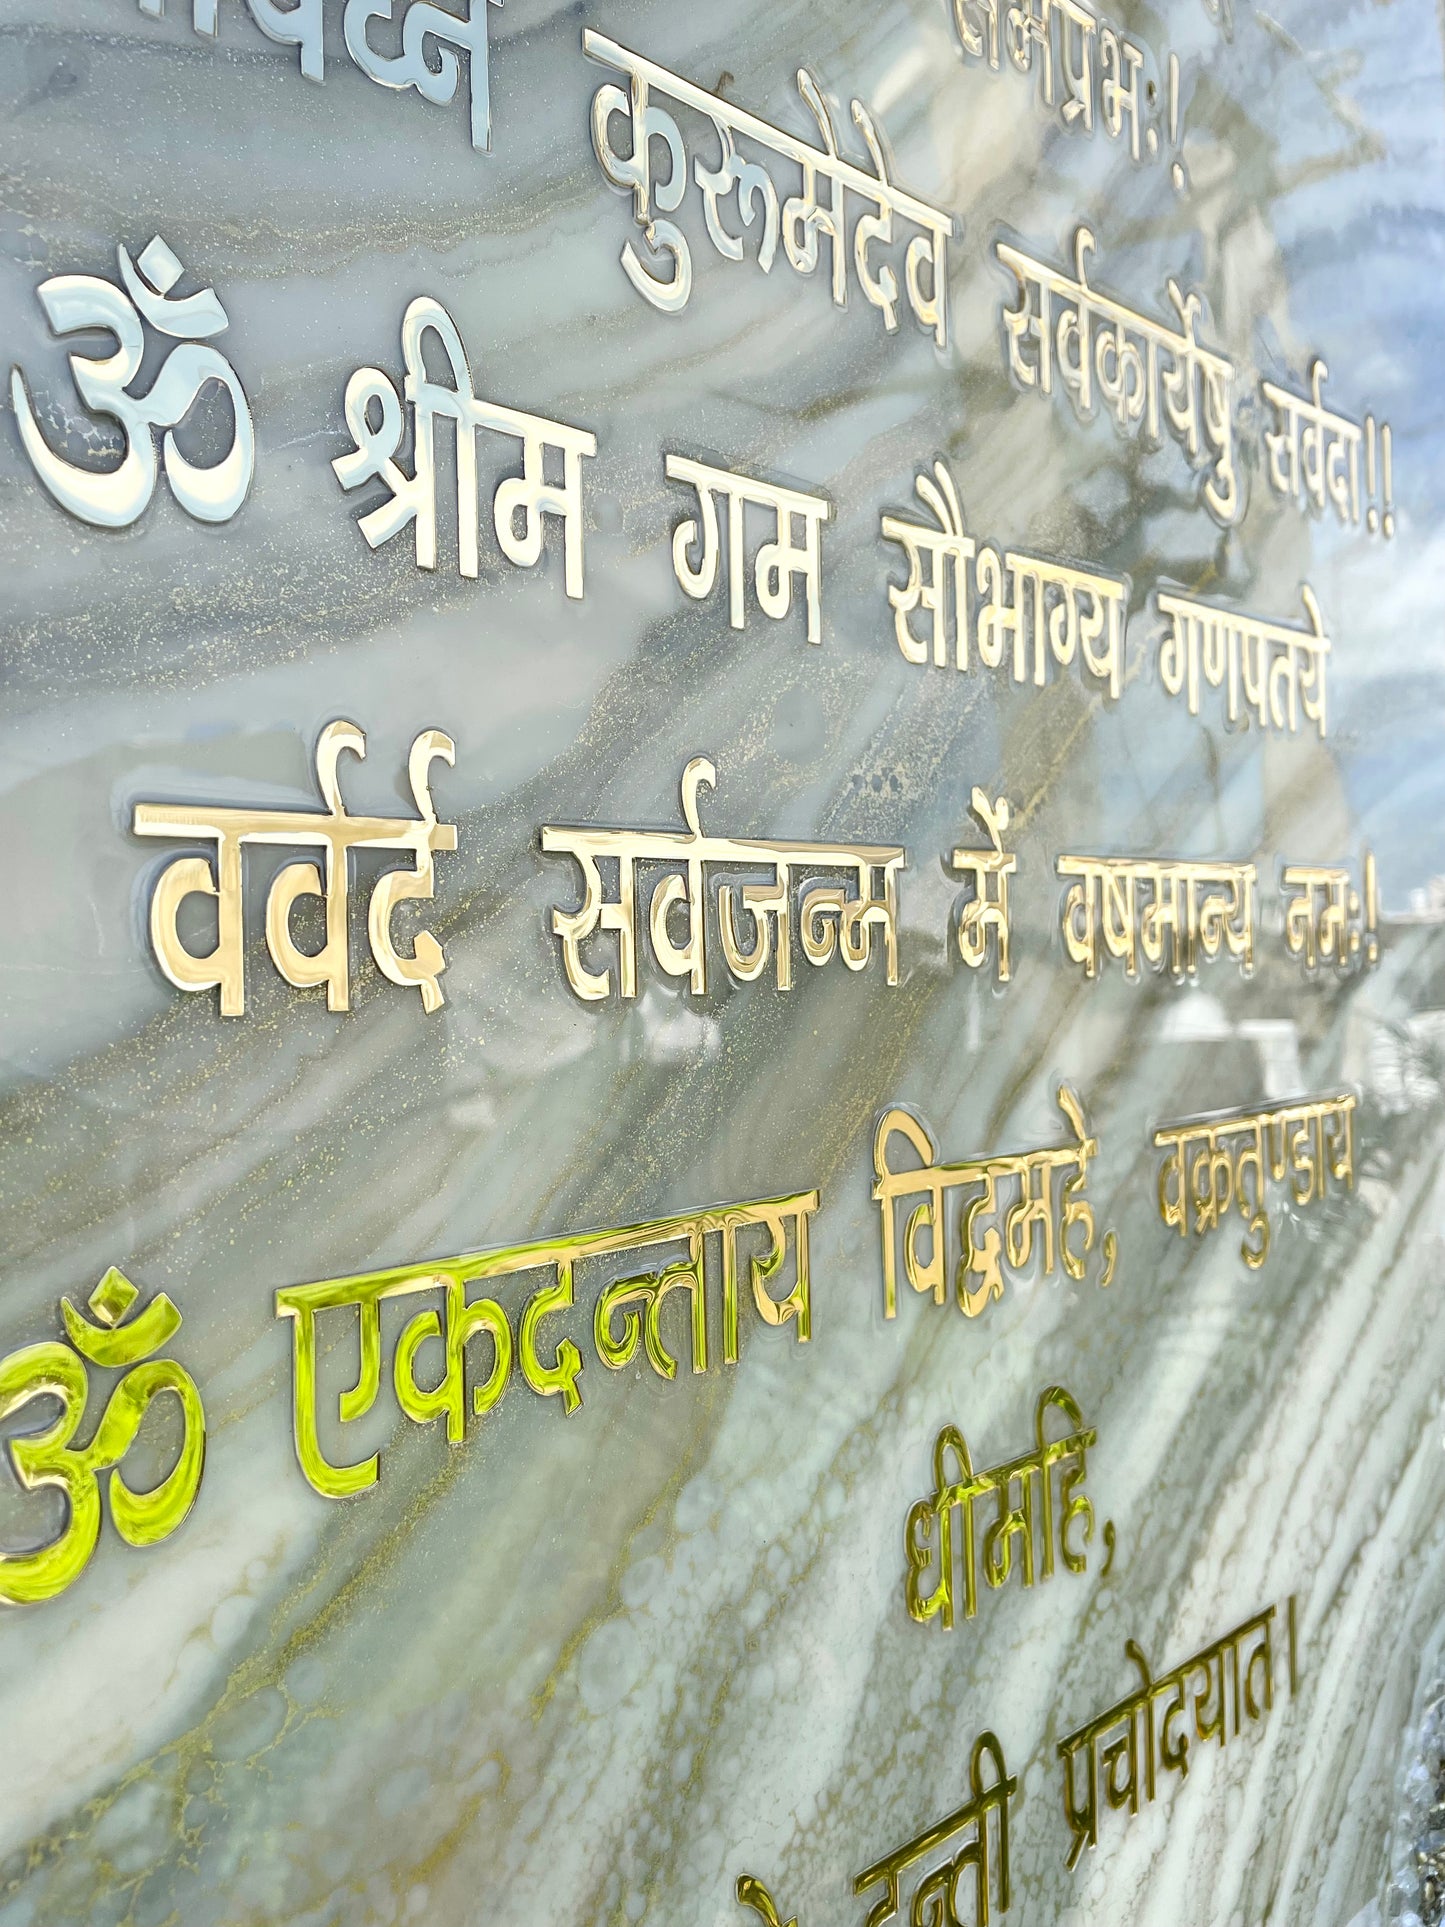 समप्रभः!
कुरूमेदेव सर्वकार्येषु सर्वदा!!
ॐ श्रीम गम सौभाग्य गणपतये
वर्वर्द सर्वजन्म में वषमान्य नमः!
ॐ एकदन्ताय विद्वमहे, वक्रतुण्डाय
धीमहि,
दन्ती प्रचोदयात।